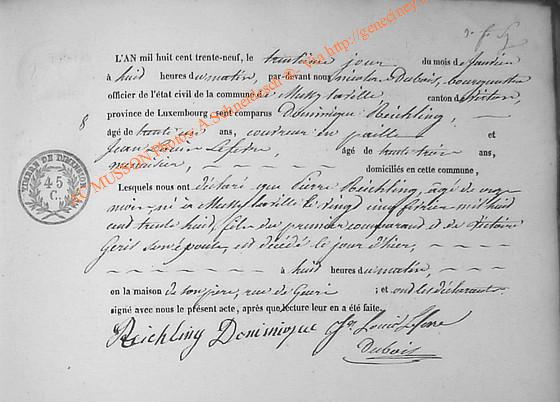 L'AN mil huit cent trente-neuf, le troisième jour du mois de Janvier
à huit heures du matin, par-devant nous Nicolas Dubois, bourgmestre
officier de l'état civil de la commune de Mussy la ville canton de Virton,
province de Luxembourg, sont comparus Dominique Reichling,
8 âgé de trente ans, couvreur en paille et
Jean Louis Lefevre, âgé de trente ans,
domiciliés en cette commune,
Lesquels nous ont déclaré que Pierre Reichling, âgé de
mois, né à Mussy la ville le vingt cinq février mil huit
cent trente huit, fils du premier comparant et de Victoire
son épouse est décédé le jour d'hier,
à huit heures du matin,
en la maison de son père, rue de ; et ont les déclarants
signé avec nous le présent acte, après que lecture leur en a été faite.
Reichling Dominique Jn Louis Lefevre
Dubois
TIMBRE DE DIMENSION
45
C.
MUSSON Photos: A. Schneidesch © - via http://geneciney.